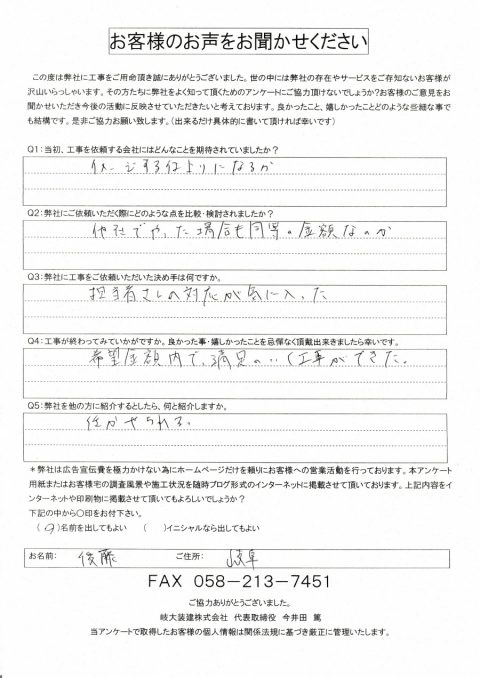 お客様のお声をお聞かせください
この度は弊社に工事をご用命頂き誠にありがとうございました。世の中には弊社の存在やサービスをご存知ないお客様が
沢山いらっしゃいます。その方たちに弊社をよく知って頂くためのアンケートにご協力頂けないでしょうか?お客様のご意見をお
聞かせいただき今後の活動に反映させていただきたいと考えております。良かったこと、嬉しかったことどのような些細な事で
も結構です。是非ご協力お願い致します。(出来るだけ具体的に書いて頂ければ幸いです)
Q1:当初、工事を依頼する会社にはどんなことを期待されていましたか?
イメージする仕上りになるか
Q2:弊社にご依頼いただく際にどのような点を比較・検討されましたか?
他社でやった場合も同等の金額なのか
Q3:弊社に工事をご依頼いただいた決め手は何ですか。
担当者さんの対応が気に入った
Q4:工事が終わってみていかがですか。良かった事・嬉しかったことを忌憚なく頂戴出来ましたら幸いです。
希望金額内で、満足のいく工事ができた。
Q5:弊社を他の方に紹介するとしたら、何と紹介しますか。
任かせられる。
*弊社は広告宣伝費を極力かけない為にホームページだけを頼りにお客様への営業活動を行っております。本アンケート
用紙またはお客様宅の調査風景や施工状況を随時ブログ形式のインターネットに掲載させて頂いております。上記内容をイ
ンターネットや印刷物に掲載させて頂いてもよろしいでしょうか?
下記の中から〇印をお付下さい。
(〇)名前を出してもよい ( )イニシャルなら出してもよい
お名前: 後藤 ご住所: 岐阜
FAX 058-213-7451
ご協力ありがとうございました。
岐大装建株式会社 代表取締役 今井田 篤
当アンケートで取得したお客様の個人情報は関係法規に基づき厳正に管理いたします。